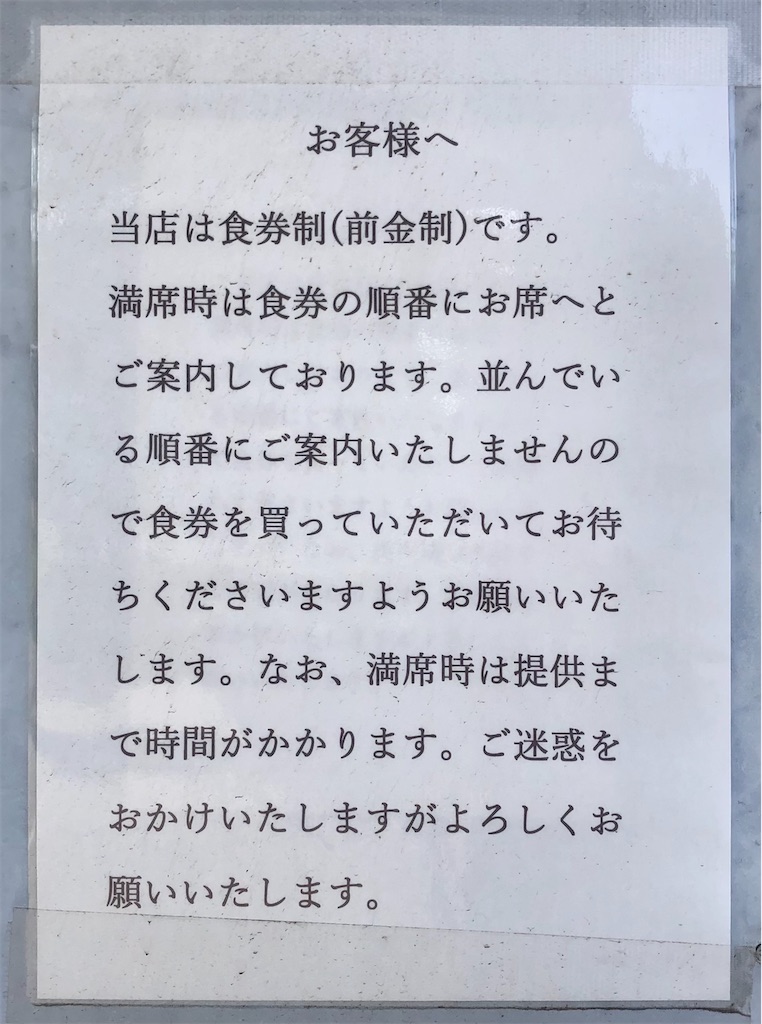 お客様へ
当店は食券制(前金制)です。
満席時は食券の順番にお席へと
ご案内しております。並んでい
る順番にご案内いたしませんの
で食券を買っていただいてお待
ちくださいますようお願いいた
します。なお、満席時は提供ま
で時間がかかります。ご迷惑を
おかけいたしますがよろしくお
願いいたします。